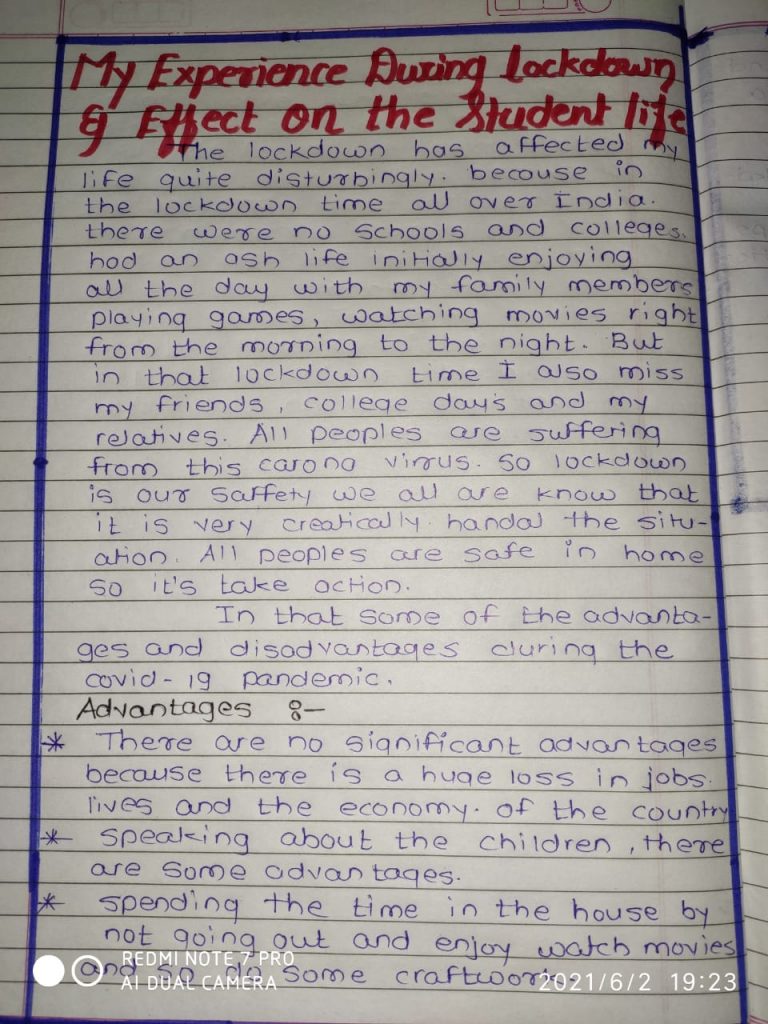 My Experience During lockdown
& Effect on the Student life
The lockdown has affected my
life quite disturbingly. becouse in
the lockdown time all over India.
there were no schools and colleges.
had an ash life initially enjoying
all the day with my family members
playing games, watching movies right
from the morning to the night. But
in that lockdown time I also miss
my friends, college day's and my
relatives. All peoples are suffering
from this carona virus. so lockdown
is our saffety we all are know that
it is very creatically handal the situ-
ation. All peoples are safe in home
so it's take action.
In that some of the advanta-
ges and disadvantages during the
covid-19 pandemic.
Advantages :-
* There are no significant advantages
because there is a huge loss in jobs.
lives and the economy. of the country
* speaking about the children, there
are some advantages.
* spending the time in the house by
not going out and enjoy watch movies
and so do some craftwork
REDMI NOTE 7 PRO
AI DUAL CAMERA
2021/6/2 19:23